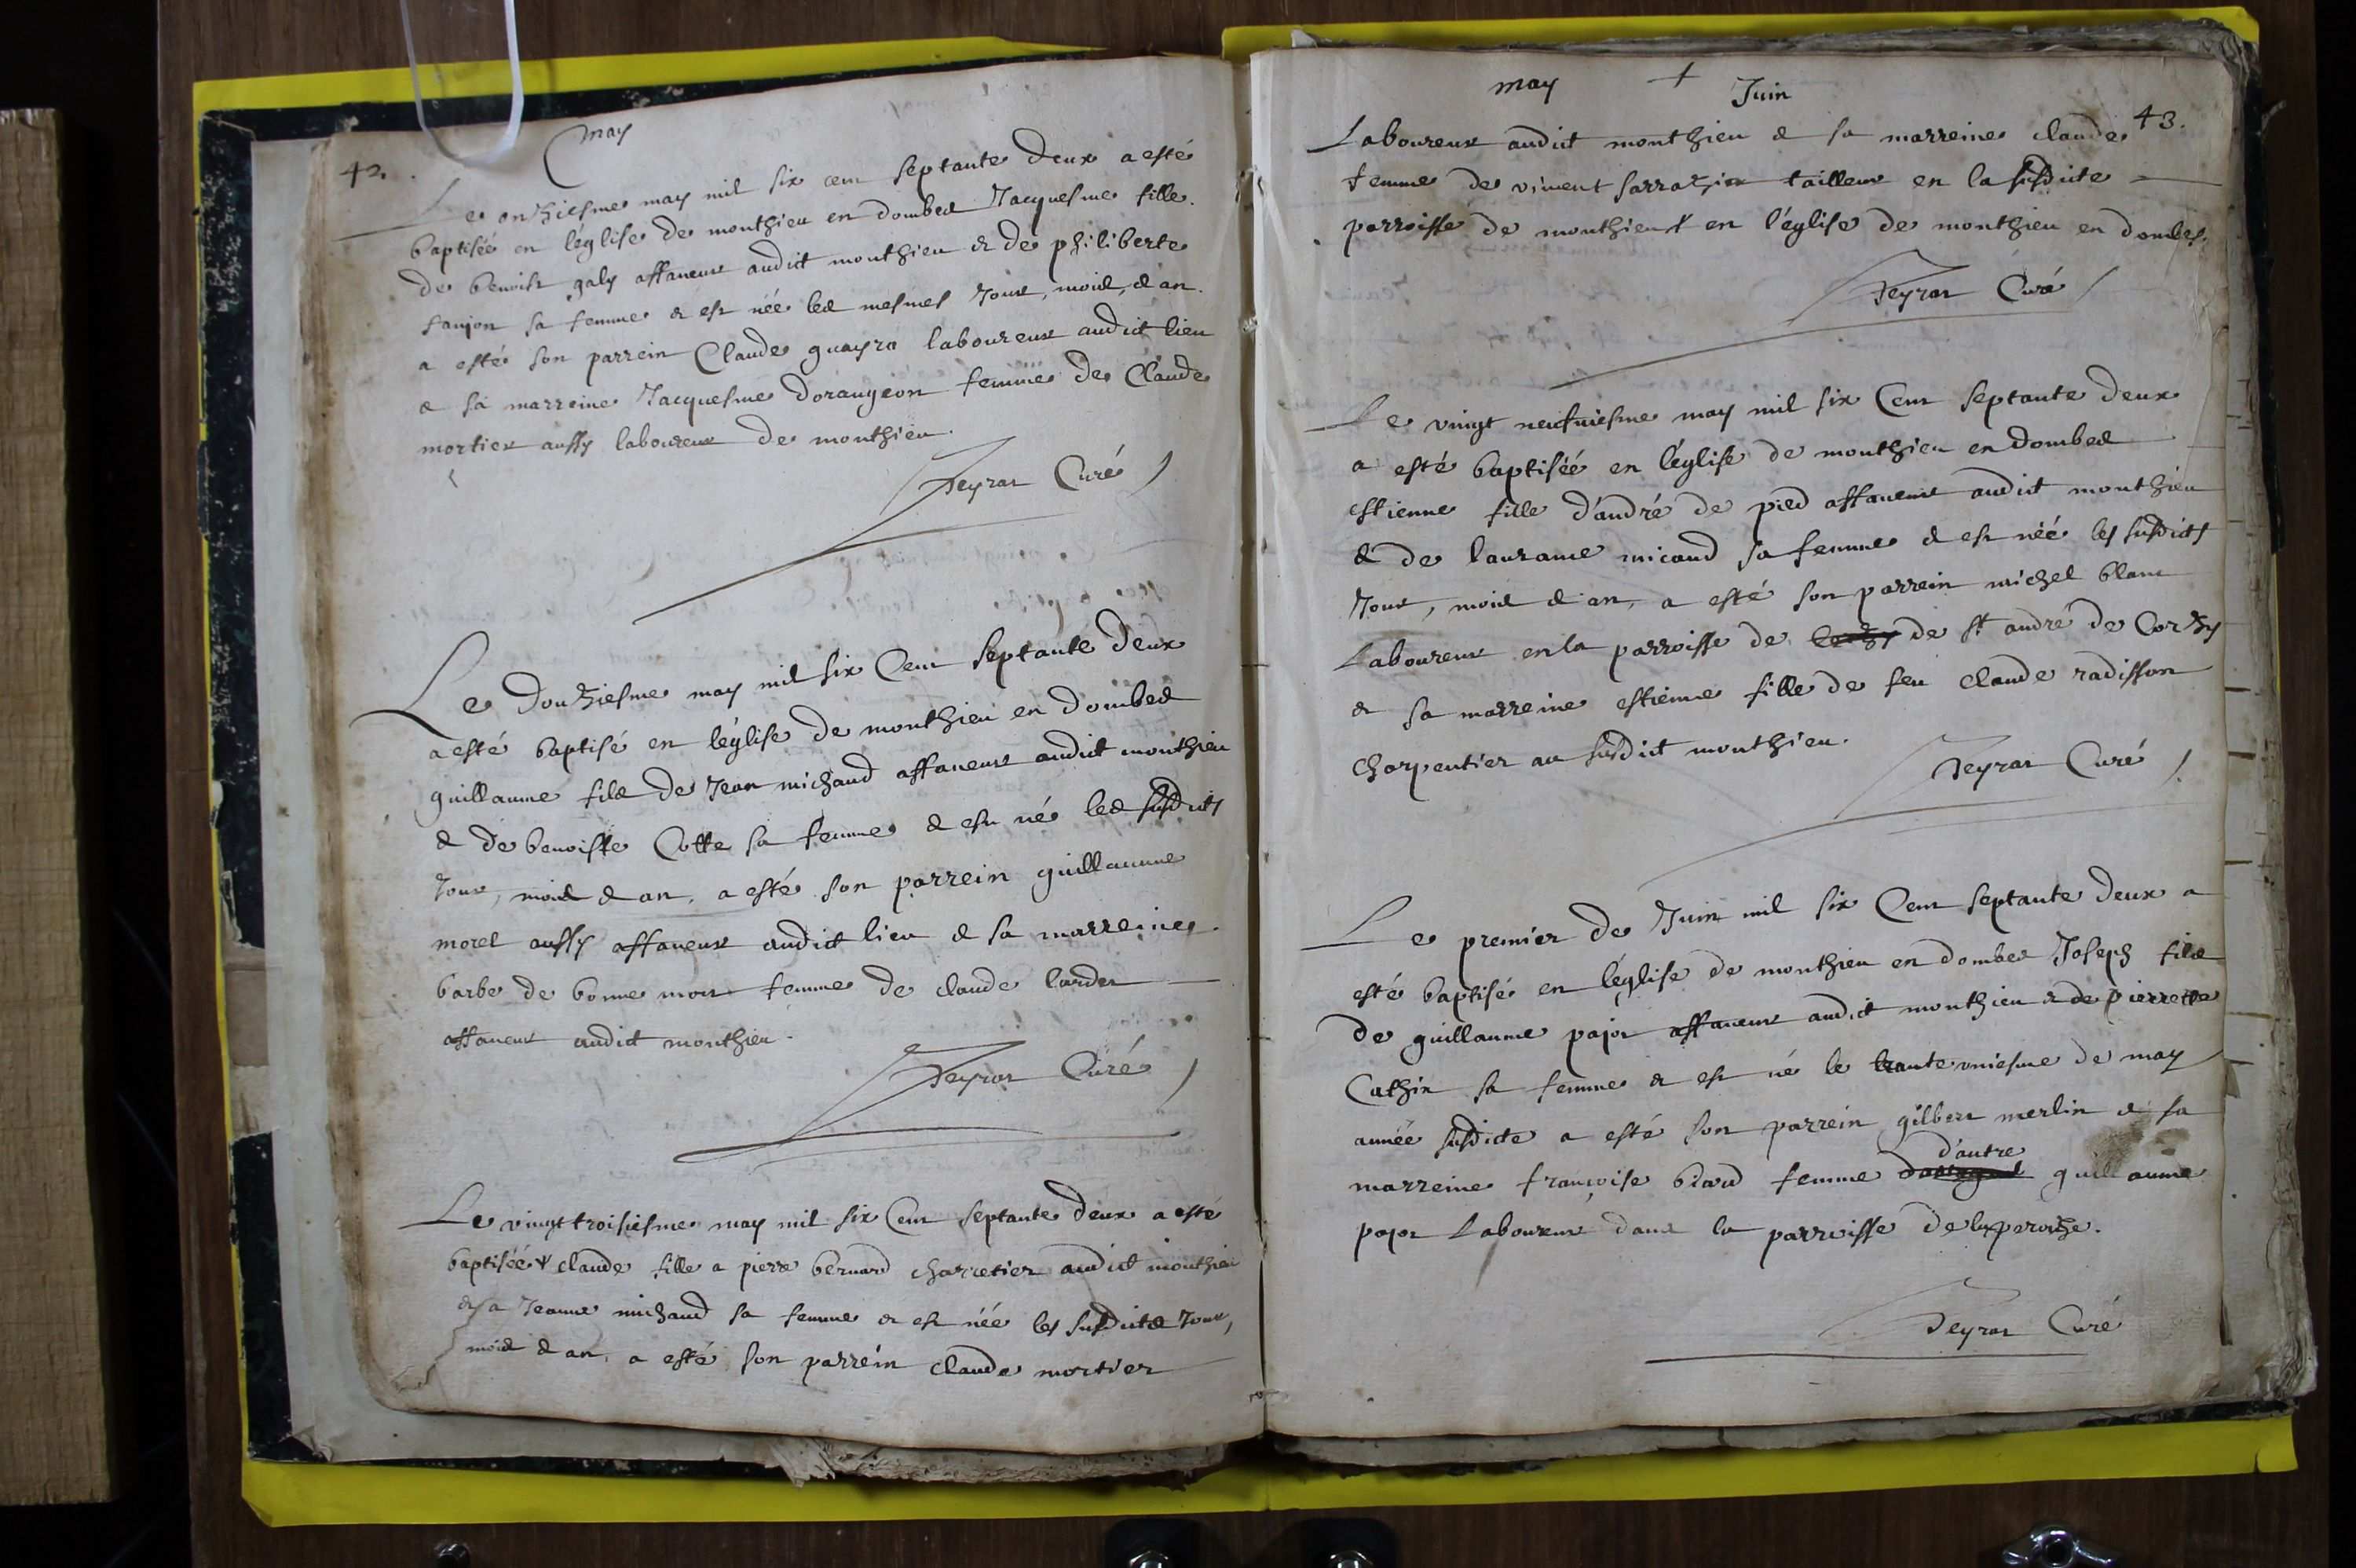 may
42.
Le onziesme may mil six cent septante deux a esté
baptiséé en l'église de monthieu en dombes Jacquesme fille
de benoist galy affaneur audit monthieu & de philiberte
sanjon sa femme & est néé les mesmes Jour, mois, & an.
a esté son parrein Claude guayra laboureur audit lieu
& sa marreine Jacquesme dorangeon femme de Claude
mortier aussy laboureur de monthieu.
Teyrat Curé
Le douziesme may mil six Cent septante deux
a esté baptisé en l'église de monthieu en dombes
guillaume fils de Jean michaud affaneur audit monthieu
& de benoiste Cotte sa femme & est né les susdits
Jour, mois & an, a esté son parrein guillaume
morel aussy affaneur audict lieu & sa marreine
barbe de bonne mort femme de claude lardet
affaneur audict monthieu.
Teyrat Curé
Le vingt troisiesme may mil six Cent septante deux a esté
baptiséé + claude fille a pierre bernard charretier audict monthieu
& a Jeanne michaud sa femme & est néé les susdicts Jour,
mois & an, a esté son parrein claude mortier
may + Juin
43.
Laboureur audict monthieu & sa marreine claude
femme de vincent sarrazin tailleur en la susdicte
parroisse de monthieu + en l'église de monthieu en dombes.
Teyrat Curé
Le vingt neufviesme may mil six Cent septante deux
a esté baptiséé en l'église de monthieu en dombes
estienne fille d'andré de pied affaneur audict monthieu
& de laurance micaud sa femme & est néé les susdicts
Jour, mois & an, a esté son parrein michel blanc
Laboureur en la parroisse de de st andré de Corzy
& sa marreine estienne fille de feu claude radisson
charpentier au susdict monthieu.
Teyrat Curé
Le premier de Juin mil six Cent septante deux a
esté baptisé en l'église de monthieu en dombes Joseph fils
de guillaume pajot affaneur audict monthieu & de pierrette
Cathin sa femme & est né le trante uniesme de may
année susdicte a esté son parrein gilbert merlin & sa
d'autre
marreine françoise biard femme guillaume
pajot Laboureur dans la parroisse de la peroüze.
Teyrat Curé